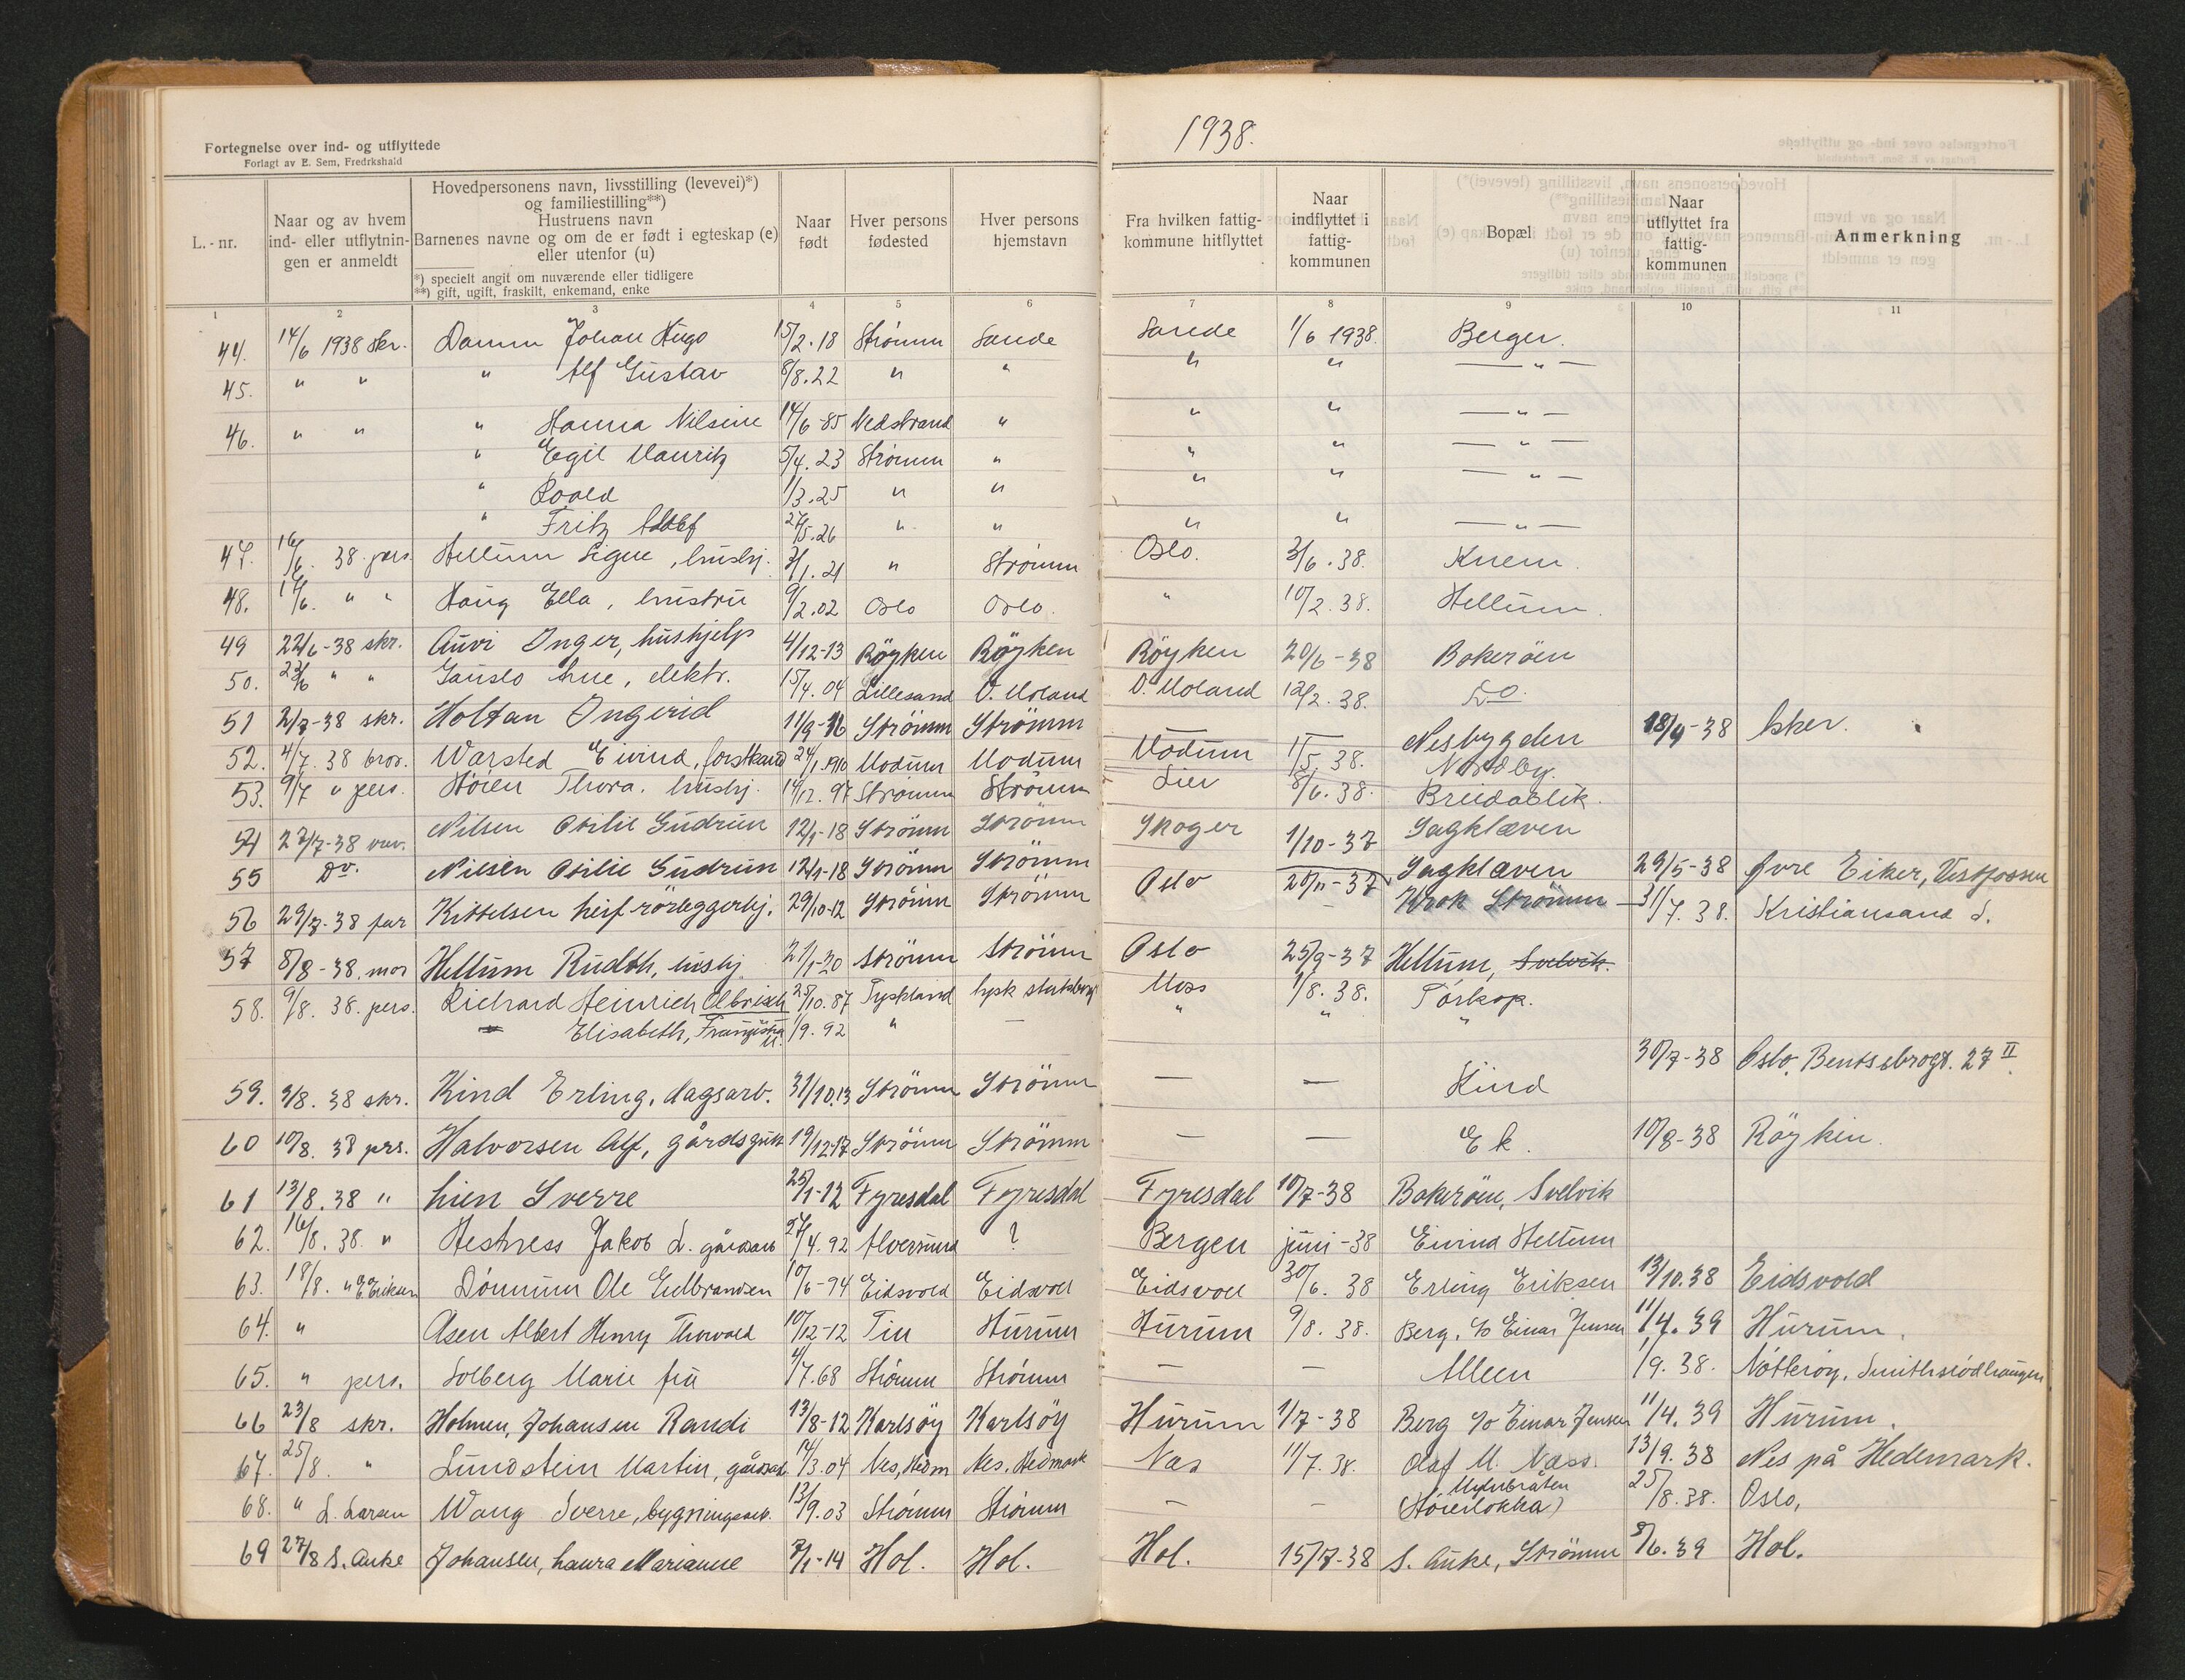 Fortegnelse over ind- og utflyttede
Forlagt av E. Sem, Fredrkshald
1938.
L.-nr.
Naar og av hvem ind- eller utflytnin-gen er anmeldt
Hovedpersonens navn, livsstilling (levevei)*) og familiestilling**)
Hustruens navn
Barnenes navne og om de er født i egteskap (e) eller utenfor (u)
*) specielt angit om nuværende eller tidligere
**) gift, ugift, fraskilt, enkemand, enke
Naar født
Hver persons fødested
Hver persons hjemstavn
Fra hvilken fattig-kommune hitflyttet
Naar indflyttet i fattig-kommunen
Bopæl
Naar utflyttet fra fattig-kommunen
Anmerkning
1 2 3 4 5 6 7 8 9 10 11
44. 14/6 1938 skr. Damm Johan Hugo 15/2.18 Strømm Sande Sande 1/6 1938. Berger.
45. " " " Alf Gustav 8/8.22 " " " " — " —
46. " " " Hanna Nilsine 14/6-85 Nedstrand " " " — " —
" Egil Mauritz 5/4.23 Strømm " " " — " —
" Roald 1/3.25 " " " " — " —
" Fritz Adolf 27/5.26 " " " " — " —
47. 16/6. 38. pers. Hellum Signe, hushj. 3/1.21 " Strømm Oslo. 3/6.38. Knem.
48. 17/6. " " Haug Ella, hustru 9/2.02 Oslo Oslo. " 10/2.38. Hellum.
49 22/6-38 skr. Auvi Inger, hushjelp 4/12-13 Röyken Röyken Röyken 20/6-38 Bokeröen
50. 23/6 " " Gauslo Arne, elektr. 15/4.04 Lillesand V. Moland V. Moland 12/2.38. Do.
51 2/7-38 skr. Holtan Ingerid 11/9-16 Strömm Strömm — — Nesbygden 18/9-38 Asker.
52. 4/7. 38 bror. Warsted Eivind, forstkand 24/1.1910 Modum Modum Modum 1/5.38. Nordby.
53. 9/7 " pers. Høien Thora. hushj. 14/12.97 Strømm Strømm Lier 8/6.38. Breidablik.
54 22/7-38 Nilsen Otilie Gudrun 12/1-18 Strömm Strömm Skoger 1/10-37 Sagklæven
55 Do. Nilsen Otilie Gudrun 12/1-18 Strömm Strömm — — Sagklæven 29/5-38 Øvre Eiker, Vestfossen
56 29/7-38 far Kittelsen Leif rörleggerhj. 29/10-12 Strömm Strömm Oslo 20/11-37 Krok Strömm — 31/7.38. Kristiansand S.
57 8/8-38. mor Hellum Rudth, hushj. 21/1-20 Strömm Strömm Oslo 25/9-37 Hellum, Svelvik.
58. 9/8. 38. pers. Richard Heinrich Olbrisch 25/10.87 Tyskland tysk statsborg Moss 1/8.38. Tørkop.
Elisabeth, Franziska 1/9.92 " — " " "
59. 9/8. 38 skr. Kind Erling, dagsarb. 31/10.13 Strömm Strömm — — Kind 30/7-38 Oslo, Bentsebrogt. 27 II.
60 10/8. 38 prs. Halvorsen Alf, gårdsgutt 19/12-17 Strömm Strömm — — Ek. 10/8-38 Röyken.
61 13/8.38 " Lien Sverre 25/1-12 Fyresdal Fyresdal Fyresdal 10/7-38 Bokeröen, Svelvik
62. 16/8. 38. " Hestness Jakob L. gårdsarb 27/4.92 Alversund ? Bergen juni-38 Eivind Hellum
63. 18/8. " E. Eriksen Dønnum Ole Gulbrandsen 10/6-94 Eidsvold Eidsvoll Eidsvoll 30/6.38 Erling Eriksen 13/10.38 Eidsvold
64. " Åsen Albert Henry Thorvald 10/12-12 Tin Hurum Hurum 9/8.38. Berg, c/o Einar Jensen 11/4.39 Hurum.
65. " pers. Solberg Marie fru 4/7.68 Strømm Strømm — — Alleen 1/9.38. Nøtterøy, Smithsrødhaugen
66 23/8 skr. Holmen, Johansen Randi 13/8-12 Karlsöy Karlsöy Hurum 1/7-38 Berg c/o Einar Jensen 11/4.39 Hurum.
67. 25/8. " Lundstein Martin, gårdsarb. 14/3.04 Nes, Hedm Nes. Hedmark Nes 11/7.38. Olaf M. Næss. 13/9.38 Nes på Hedemark.
68. " L. Larsen Wang Sverre, bygningsarb. 13/9.03 Strømm Strømm — — Myhrbråten (Høierløkka) 25/8.38. Oslo.
69 27/8 S. Auke Johansen, Laura Marianne 7/1-14 Hol. Hol. Hol. 15/7-38 S. Auke, Strömm 8/6.39 Hol.